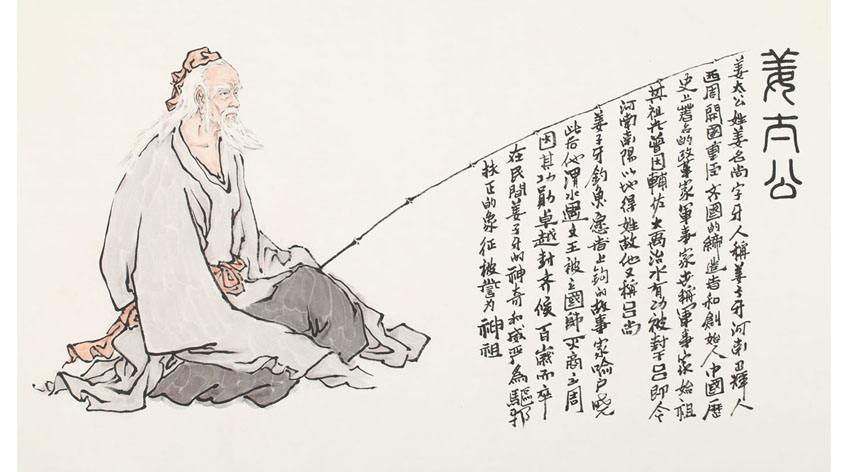 姜太公
姜太公姓姜名尚字牙人稱姜子牙河南卫輝人
西周開國重臣齐國的締造者和創始人中國歷
史上著名的政事家軍事家世稱軍事家始祖
其祖先曾因輔佐大禹治水有功被封于吕即今
河南南陽以地得姓故他又稱吕尚
姜子牙釣魚愿者上钩的故事家喻户晓
此后他渭水遇文王被立國師灭商立周
因其功勋卓越封齐侯百歲而卒
在民間姜子牙的神奇和威严為驅邪
扶正的象征被誉为神祖